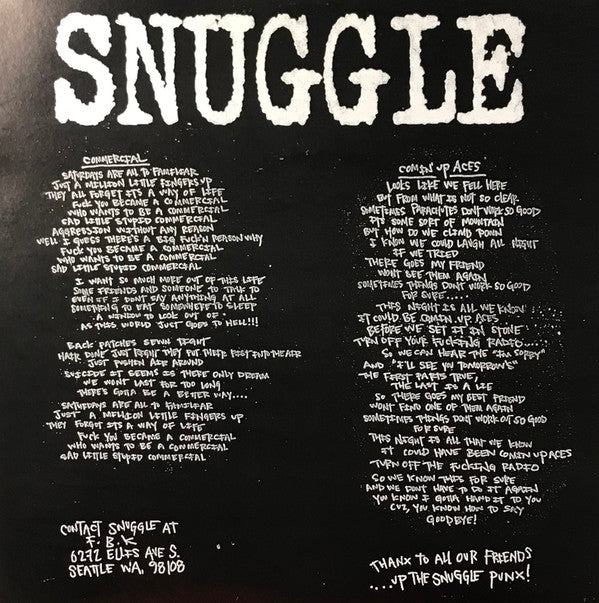 SNUGGLE
COMMERCIAL
SATURDAYS ARE ALL TO FAMILIAR
JUST A MILLION LITTLE FINGERS UP
THEY ALL FORGET ITS A WAY OF LIFE
FUCK YOU BECAME A COMMERCIAL
WHO WANTS TO BE A COMMERCIAL
SAD LITTLE STUPID COMMERCIAL
AGGRESSION WITHOUT ANY REASON
WELL I GUESS THERE'S A BIG FUCK'N REASON WHY
FUCK YOU BECAME A COMMERCIAL
WHO WANTS TO BE A COMMERCIAL
SAD LITTLE STUPID COMMERCIAL
I WANT SO MUCH MORE OUT OF THIS LIFE
SOME FRIENDS AND SOMEONE TO TALK TO
EVEN IF I DONT SAY ANYTHING AT ALL
SOMETHING TO EAT SOMEWHERE TO SLEEP
A WINDOW TO LOOK OUT OF.
AS THIS WORLD JUST GOES TO HELL!!!
BACK PATCHES SEWN RIGHT
HAIR DONE JUST RIGHT THEY PUT THERE FIST INTO THE AIR
JUST PUSHEN AIR AROUND
SUICIDE IT SEEMS IS THERE ONLY DREAM
WE WONT LAST FOR TOO LONG
THERE'S GOTTA BE A BETTER WAY....
SATURDAYS ARE ALL TO FAMILIAR
JUST A MILLION LITTLE FINGERS UP
THEY FORGOT ITS A WAY OF LIFE
FUCK YOU BECAME A COMMERCIAL
WHO WANTS TO BE A COMMERCIAL
SAD LITTLE STUPID COMMERCIAL
CONTACT SNUGGLE AT
F.B.K
6272 ELLIS AVE S.
SEATTLE WA, 98108
COMIN UP ACES
LOOKS LIKE WE FELL HERE
BUT FROM WHAT IS NOT SO CLEAR
SOMETIMES PARACHUTES DONT WORK SO GOOD
ITS SOME SORT OF MOUNTAIN
BUT HOW DO WE CLIMB DOWN
I KNOW WE COULD LAUGH ALL NIGHT
IF WE TRIED
THERE GOES MY FRIEND
WONT SEE THEM AGAIN
SOMETIMES THINGS DONT WORK SO GOOD
FOR SURE.....
THIS NIGHT IS ALL WE KNOW
IT COULD BE COMIN UP ACES
BEFORE WE SET IT IN STONE
TURN OFF YOUR FUCKING RADIO....
SO WE CAN HEAR THE "IM SORRY"
AND "I'LL SEE YOU TOMORROW'S"
THE FIRST PARTS TRUE,
THE LAST IS A LIE
SO THERE GOES MY BEST FRIEND
WONT FIND ONE OF THEM AGAIN
SOMETIMES THINGS DONT WORK OUT SO GOOD
FOR SURE
THIS NIGHT IS ALL THAT WE KNOW
IT COULD HAVE BEEN COMIN UP ACES
TURN OFF THE FUCKING RADIO
SO WE KNOW THIS FOR SURE
AND WE DONT HAVE TO DO IT AGAIN
YOU KNOW I GOTTA HAND IT TO YOU
CUZ YOU KNOW HOW TO SAY
GOODBYE!
THANX TO ALL OUR FRIENDS
....UP THE SNUGGLE PUNX!